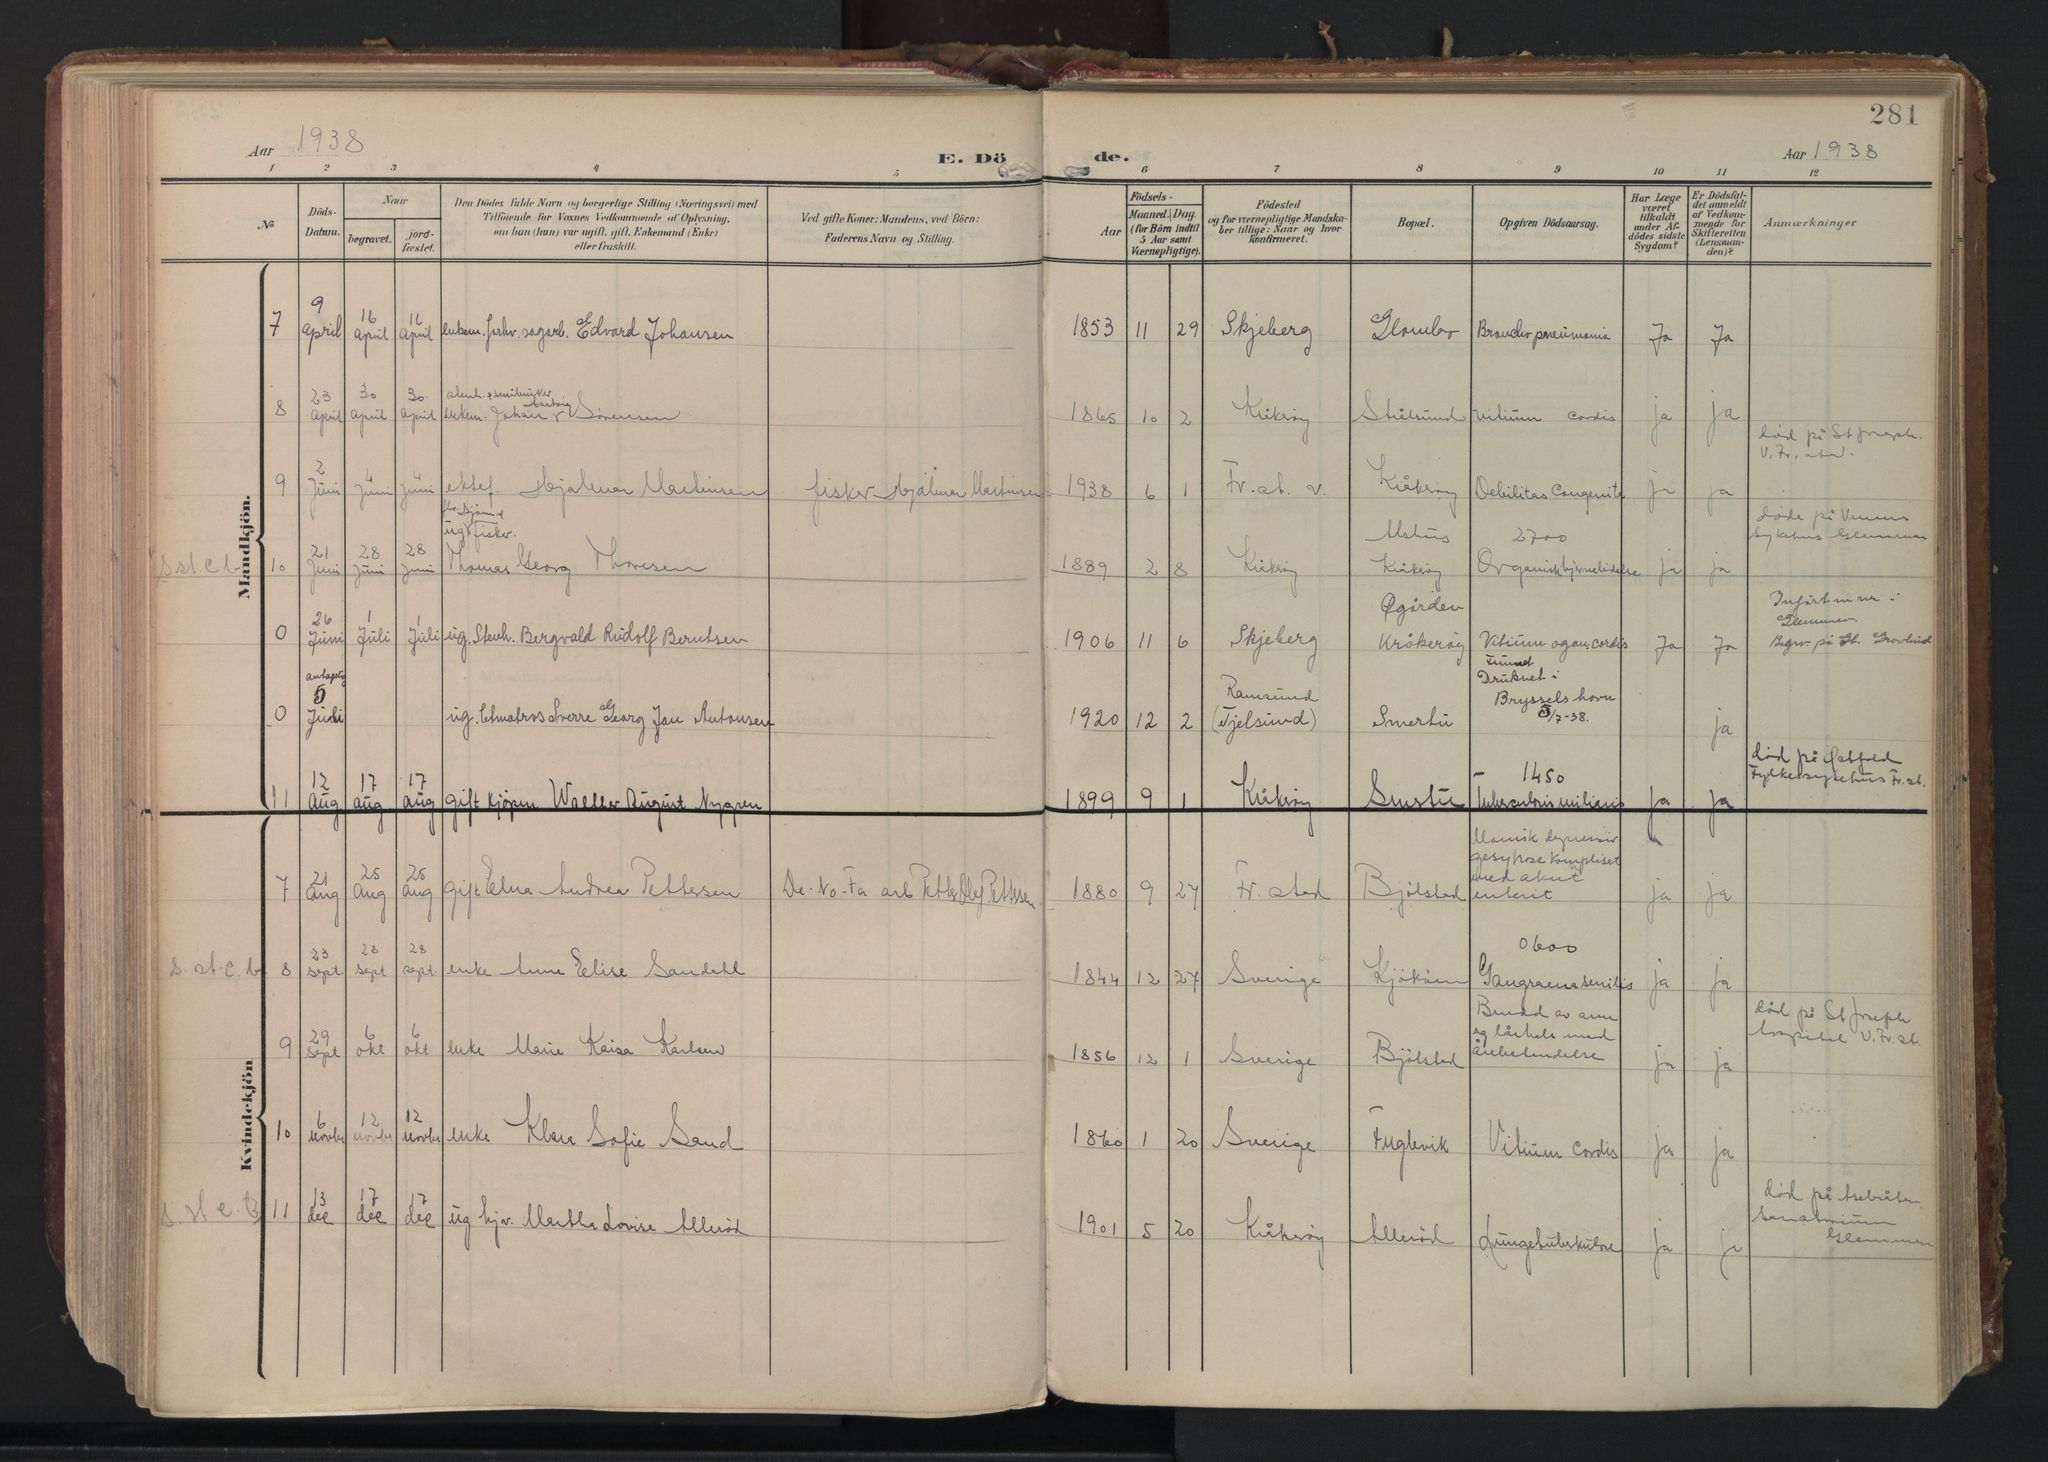 281
Aar 1938
E. Dö de.
Aar 1938
1 2 3 4 5 6 7 8 9 10 11 12
No
Döds-
Datum.
Naar
begravet.
jord-
fæstet.
Den Dödes fulde Navn og borgerlige Stilling (Næringsvei) med
Tilföiende for Voxnes Vedkommende af Oplysning,
om han (hun) var ugift, gift, Enkemand (Enke)
eller fraskilt.
Ved gifte Koner: Mandens, ved Börn:
Faderens Navn og Stilling.
Födsels-
Aar
Maaned. Dag.
(for Börn indtil
5 Aar samt
Værnepligtige).
Födested
og for værnepligtige Mandska-
ber tillige: Naar og hvor
konfirmeret.
Bopæl.
Opgiven Dödsaarsag.
Har Læge
været
tilkaldt
under Af-
dödes sidste
Sygdom?
Er Dödsfal-
det anmeldt
af Vedkom-
mende for
Skifteretten
(Lensman-
den)?
Anmærkninger
Mandkjön.
7 9 April 16 April 16 April enkem. forhv. sagarb. Edvard Johansen 1853 11 29 Skjeberg Glombo Broncho pneumonia Ja Ja
Hartvig
8 23 April 30 April 30 April enkem. Johan v Sørensen 1865 10 2 Kråkerøy Stålsund Vitium cordis ja ja
død på St Joseph.
V. Fr. stad.
9 2 Juni 4 Juni 4 Juni ektef. Hjalmar Martinsen fisker Hjalmar Martinsen 1938 6 1 Fr. st. v. Kråkerøy Debilitas Congenita ja ja
ug. fisker.
2700
døde på Venens
sykehus Glemmen
s. st. c. b. 10 21 Juni 28 Juni 28 Juni Thomas Georg Thoresen 1889 2 8 Kråkerøy Kråkerøy Organisk hjernelidelse ja ja
Øgården
Glemmen
0 26 Juni 1 Juli 1 Juli ug. Stenh. Bergvald Rudolf Berntsen 1906 11 6 Skjeberg Kråkerøy Vitium organ. cordis Ja Ja Begrv. på Gl. Gravlund
antagelig
Funnet
Druknet i
Bryssels havn
5/7-38.
0 5 Juli ug. Sverre Georg Jan Antonsen 1920 12 2 Ramsund (Tjelsund) Smertu ja
1450
død på Østfold
Fylkessykehus Fr. st.
11 12 Aug 17 Aug 17 Aug gift kjøpm. Walter August Nygren 1899 9 1 Kråkerøy Smertu Tuberculosis miliaris ja ja
Kvindekjön
Manisk depressiv
med akut
enterit
7 21 Aug 25 Aug 25 Aug gift Elna Andrea Pettersen De-No-Fa arb Petter Olaf Pettersen 1880 9 27 Fr. stad Bjølstad ja ja
0600
s. st. c. b. 8 23 sept 28 sept 28 sept enke Anne Elise Sandahl 1844 12 27 Sverige Kjøkøen Gangraena senilis ja ja
Brudd av arm
og lårhals med
årebetendelse
død på St Joseph
hospital V. Fr. st.
9 29 sept 6 okt 6 okt enke Marie Kaisa Karlsen 1856 12 1 Sverige Bjølstad ja ja
10 6 novbr 12 novbr 12 novbr enke Klara Sofie Sand 1860 1 20 Sverige Fuglevik Vitium cordis ja ja
død på Asebråten
Sanatorium
Glemmen
s. st. c. b. 11 13 dec 17 dec 17 dec ug hjv. Martha Lovise Allerød 1901 5 20 Kråkerøy Allerød Lungetuberkulose ja ja